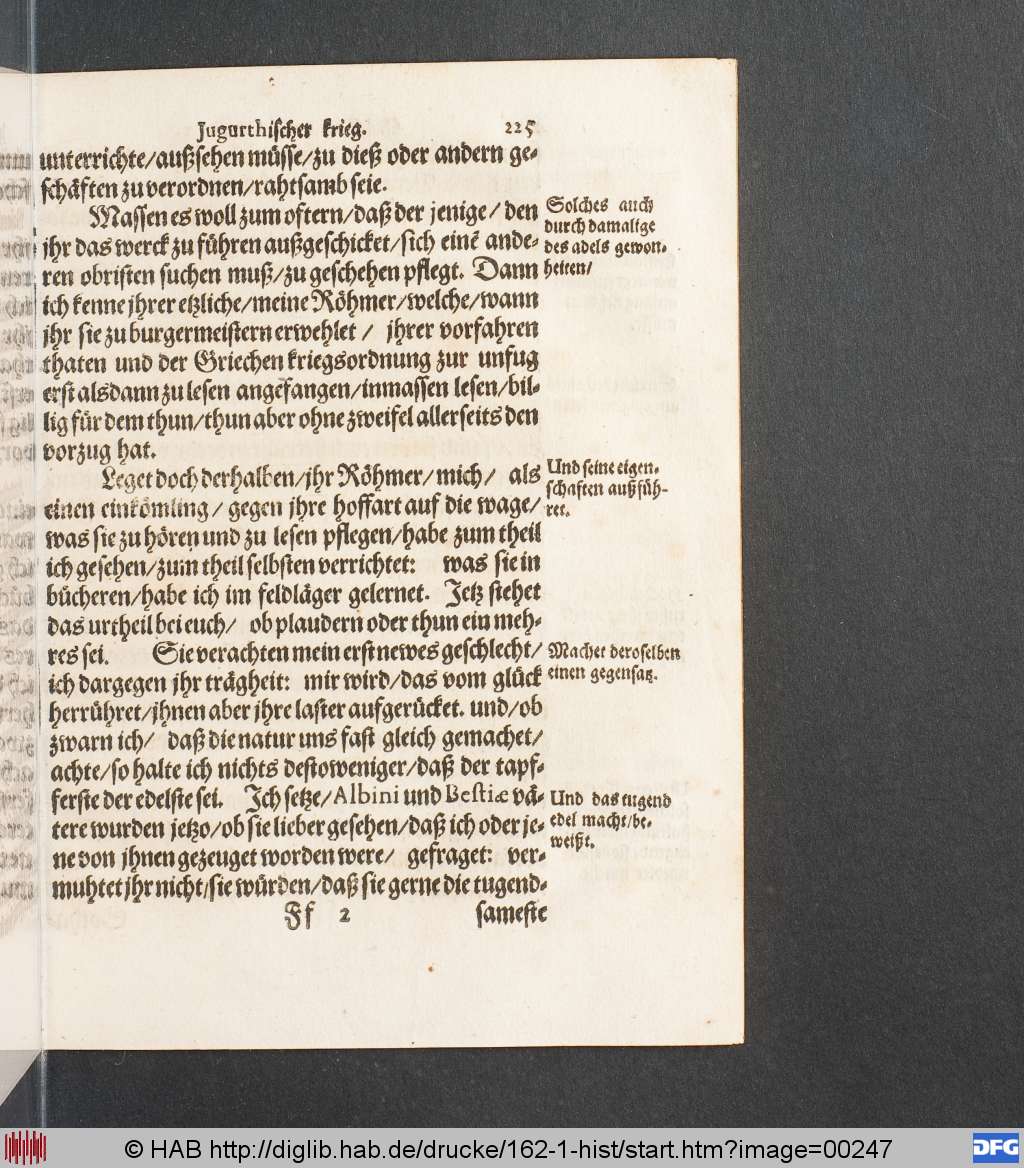 Jugurthischer krieg. 225
unterrichte/außsehen müsse/zu dieß oder andern ge-
schäften zu verordnen/rahtsamb seie.
Massen es woll zum oftern/daß der jenige/ den
jhr das werck zu führen außgeschicket/sich einẽ ande-
ren obristen suchen muß/zu geschehen pflegt. Dann
ich kenne jhrer etzliche/meine Röhmer/welche/wann
jhr sie zu burgermeistern erwehlet/ jhrer vorfahren
thaten und der Griechen kriegsordnung zur unfug
erst alsdann zu lesen angefangen/inmassen lesen/bil-
lig für dem thun/thun aber ohne zweifel allerseits den
vorzug hat.
Leget doch derhalben/jhr Röhmer/mich/ als
einen einkömling/ gegen jhre hoffart auf die wage/
was sie zu hören und zu lesen pflegen/habe zum theil
ich gesehen/zum theil selbsten verrichtet: was sie in
bücheren/habe ich im feldläger gelernet. Jetz stehet
das urtheil bei euch/ ob plaudern oder thun ein meh-
res sei. Sie verachten mein erst newes geschlecht/
ich dargegen jhr trägheit: mir wird/das vom glück
herrühret/jhnen aber jhre laster aufgerücket. und/ob
zwarn ich/ daß die natur uns fast gleich gemachet/
achte/so halte ich nichts destoweniger/daß der tapf-
ferste der edelste sei. Ich setze/Albini und Bestiæ vä-
tere wurden jetzo/ob sie lieber gesehen/daß ich oder je-
ne von jhnen gezeuget worden were/ gefraget: ver-
muhtet jhr nicht/sie würden/daß sie gerne die tugend-
Ff 2 sameste
Solches auch
durch damalige
des adels gewon-
heiten/
Und seine eigen-
schaften außfüh-
ret.
Machet deroselben
einen gegensatz.
Und das tugend
edel macht/be-
weißt.
© HAB http://diglib.hab.de/drucke/162-1-hist/start.htm?image=00247
DFG